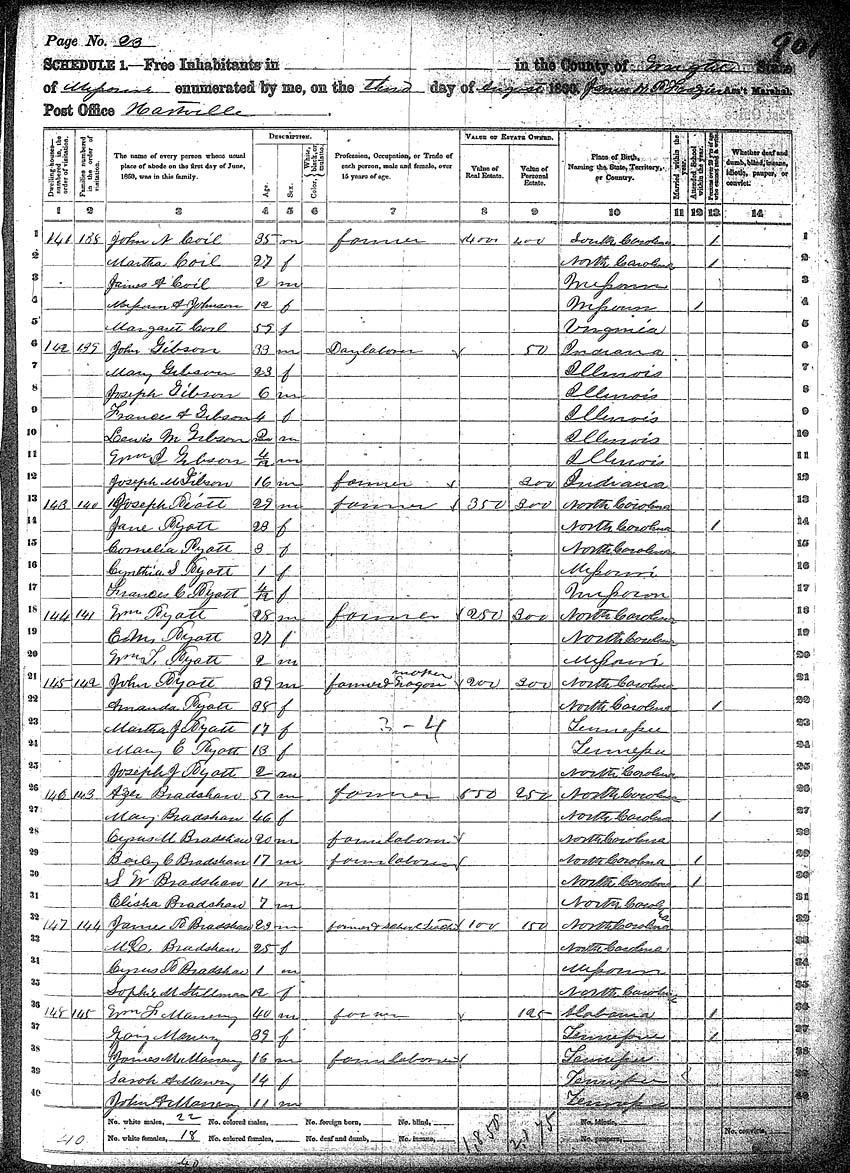 Page No. 23
901
SCHEDULE 1.—Free Inhabitants in in the County of State
of Missouri enumerated by me, on the third day of August 1860. James Ass't Marshal.
Post Office Hartville
Dwelling-houses—numbered in the order of visitation.
Families numbered in the order of visitation.
The name of every person whose usual place of abode on the first day of June, 1860, was in this family.
DESCRIPTION.
Age.
Sex.
Color, White, black, or mulatto.
Profession, Occupation, or Trade of each person, male and female, over 15 years of age.
VALUE OF ESTATE OWNED.
Value of Real Estate.
Value of Personal Estate.
Place of Birth, Naming the State, Territory, or Country.
Married within the year.
Attended School within the year.
Persons over 20 y'rs of age who cannot read & write.
Whether deaf and dumb, blind, insane, idiotic, pauper, or convict.
1 2 3 4 5 6 7 8 9 10 11 12 13 14
1 141 138 John N Coil 35 m farmer 400 400 South Carolina 1 1
2 Martha Coil 27 f North Carolina 1 2
3 James A Coil 2 m Missouri 3
4 A Johnson 12 f Missouri 1 4
5 Margaret Coil 59 f Virginia 5
6 142 139 John Gibson 33 m Day laborer 50 Indiana 6
7 Mary Gibson 23 f Illinois 7
8 Joseph Gibson 6 m Illinois 8
9 Frances A Gibson 4 f Illinois 9
10 Lewis M Gibson 2 m Illinois 10
11 Wm I Gibson 4/12 m Illinois 11
12 Joseph M Gibson 16 m farmer 200 Indiana 12
13 143 140 Joseph Pyatt 29 m farmer 350 300 North Carolina 13
14 Jane Pyatt 23 f North Carolina 1 14
15 Cornelia Pyatt 3 f North Carolina 15
16 Cynthia S Pyatt 1 f Missouri 16
17 Frances C Pyatt 4/12 f Missouri 17
18 144 141 Wm Pyatt 28 m farmer 250 300 North Carolina 18
19 Pyatt 27 f North Carolina 19
20 Wm T. Pyatt 2 m Missouri 20
21 145 142 John Pyatt 39 m farmer & Wagon maker 200 300 North Carolina 21
22 Amanda Pyatt 38 f North Carolina 1 22
23 Martha J Pyatt 17 f 3-4 Tennessee 23
24 Mary E Pyatt 13 f Tennessee 24
25 Joseph J Pyatt 2 m North Carolina 25
26 146 143 Bradshaw 57 m farmer 550 250 North Carolina 26
27 Mary Bradshaw 46 f North Carolina 1 27
28 Cyrus M Bradshaw 20 m farm laborer North Carolina 28
29 Bailey C Bradshaw 17 m farm laborer North Carolina 1 29
30 S W Bradshaw 11 m North Carolina 1 30
31 Elisha Bradshaw 7 m North Carolina 31
32 147 144 James B Bradshaw 23 m farmer & school teacher 100 150 North Carolina 32
33 M.C. Bradshaw 25 f North Carolina 33
34 Cyrus B Bradshaw 1 m Missouri 34
35 Sophie M Stillman 12 f North Carolina 35
36 148 145 Wm F Manery 40 m farmer 125 Alabama 1 36
37 Manery 39 f Tennessee 1 37
38 James M Manery 16 m farm laborer Tennessee 38
39 Sarah A Manery 14 f Tennessee 39
40 John A Manery 11 m Tennessee 40
No. white males, 22 No. colored males, No. foreign born, No. blind, No. idiotic,
40 No. white females, 18 No. colored females, No. deaf and dumb, No. insane, 1,850 No. paupers, No. convicts,
40